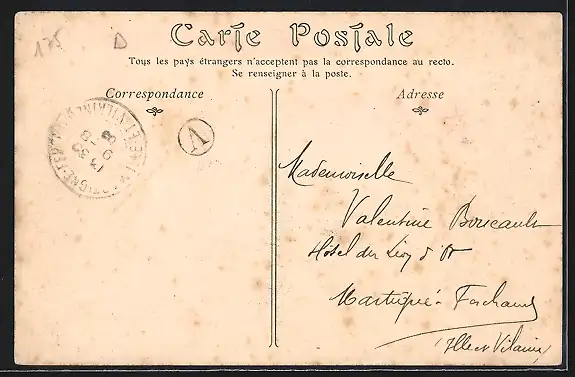 175 D
Carte Postale
Tous les pays étrangers n'acceptent pas la correspondance au recto.
Se renseigner à la poste.
Correspondance
Adresse
A
Mademoiselle
Valentine Boucault
Hôtel du Lion d'Or
Martigné-Ferchaud
(Ille et Vilaine)